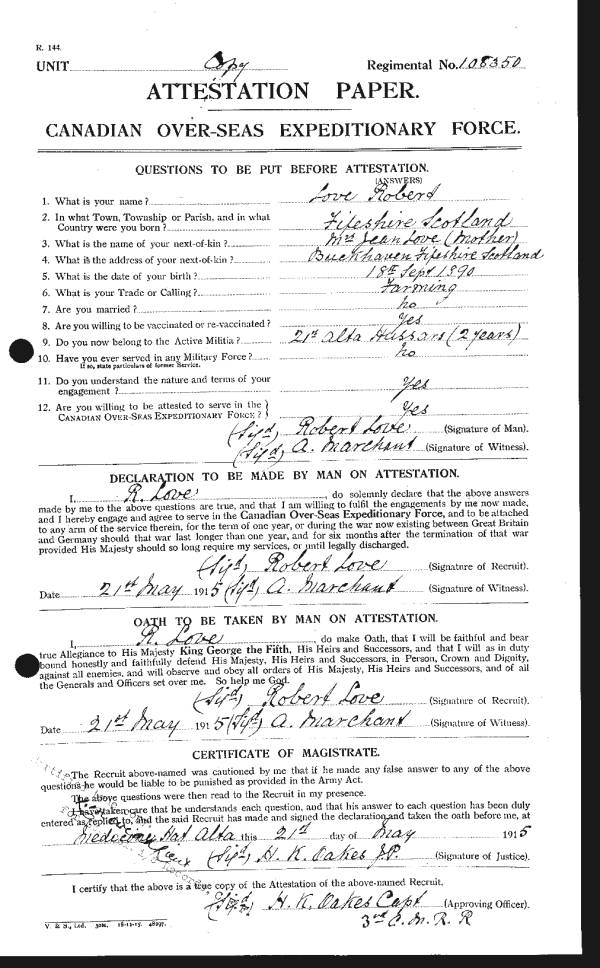 R. 144.
UNIT Copy Regimental No. 108350
ATTESTATION PAPER.
CANADIAN OVER-SEAS EXPEDITIONARY FORCE.
QUESTIONS TO BE PUT BEFORE ATTESTATION.
(ANSWERS)
1. What is your name? Love Robert
2. In what Town, Township or Parish, and in what
Country were you born? Fifeshire Scotland
3. What is the name of your next-of-kin? Mrs Jean Love (Mother)
4. What is the address of your next-of-kin? Buckhaven Fifeshire Scotland
5. What is the date of your birth? 18th Sept 1890
6. What is your Trade or Calling? Farming
7. Are you married? no
8. Are you willing to be vaccinated or re-vaccinated? Yes
9. Do you now belong to the Active Militia? 21st Alta Hussars (2 years)
10. Have you ever served in any Military Force? no
If so, state particulars of former Service.
11. Do you understand the nature and terms of your
engagement? Yes
12. Are you willing to be attested to serve in the
CANADIAN OVER-SEAS EXPEDITIONARY FORCE? Yes
(Sigd) Robert Love (Signature of Man).
(Sigd) A. Marchant (Signature of Witness).
DECLARATION TO BE MADE BY MAN ON ATTESTATION.
I, R. Love, do solemnly declare that the above answers
made by me to the above questions are true, and that I am willing to fulfil the engagements by me now made,
and I hereby engage and agree to serve in the Canadian Over-Seas Expeditionary Force, and to be attached
to any arm of the service therein, for the term of one year, or during the war now existing between Great Britain
and Germany should that war last longer than one year, and for six months after the termination of that war
provided His Majesty should so long require my services, or until legally discharged.
(Sigd) Robert Love (Signature of Recruit).
Date 21st May 1915 (Sigd) A. Marchant (Signature of Witness).
OATH TO BE TAKEN BY MAN ON ATTESTATION.
I, R. Love, do make Oath, that I will be faithful and bear
true Allegiance to His Majesty King George the Fifth, His Heirs and Successors, and that I will as in duty
bound honestly and faithfully defend His Majesty, His Heirs and Successors, in Person, Crown and Dignity,
against all enemies, and will observe and obey all orders of His Majesty, His Heirs and Successors, and of all
the Generals and Officers set over me. So help me God.
(Sigd) Robert Love (Signature of Recruit).
Date 21st May 1915 (Sigd) A. Marchant (Signature of Witness).
CERTIFICATE OF MAGISTRATE.
The Recruit above-named was cautioned by me that if he made any false answer to any of the above
questions he would be liable to be punished as provided in the Army Act.
The above questions were then read to the Recruit in my presence.
I have taken care that he understands each question, and that his answer to each question has been duly
entered as replied to, and the said Recruit has made and signed the declaration and taken the oath before me, at
Medicine Hat Alta this 21st day of May 1915
(Sigd) H. K. Oakes J.P. (Signature of Justice).
I certify that the above is a true copy of the Attestation of the above-named Recruit.
(Sigd) H. K. Oakes Capt (Approving Officer).
3rd C. M. R. R
V. & S., Ltd. 30M. 18-12-15. 48297.